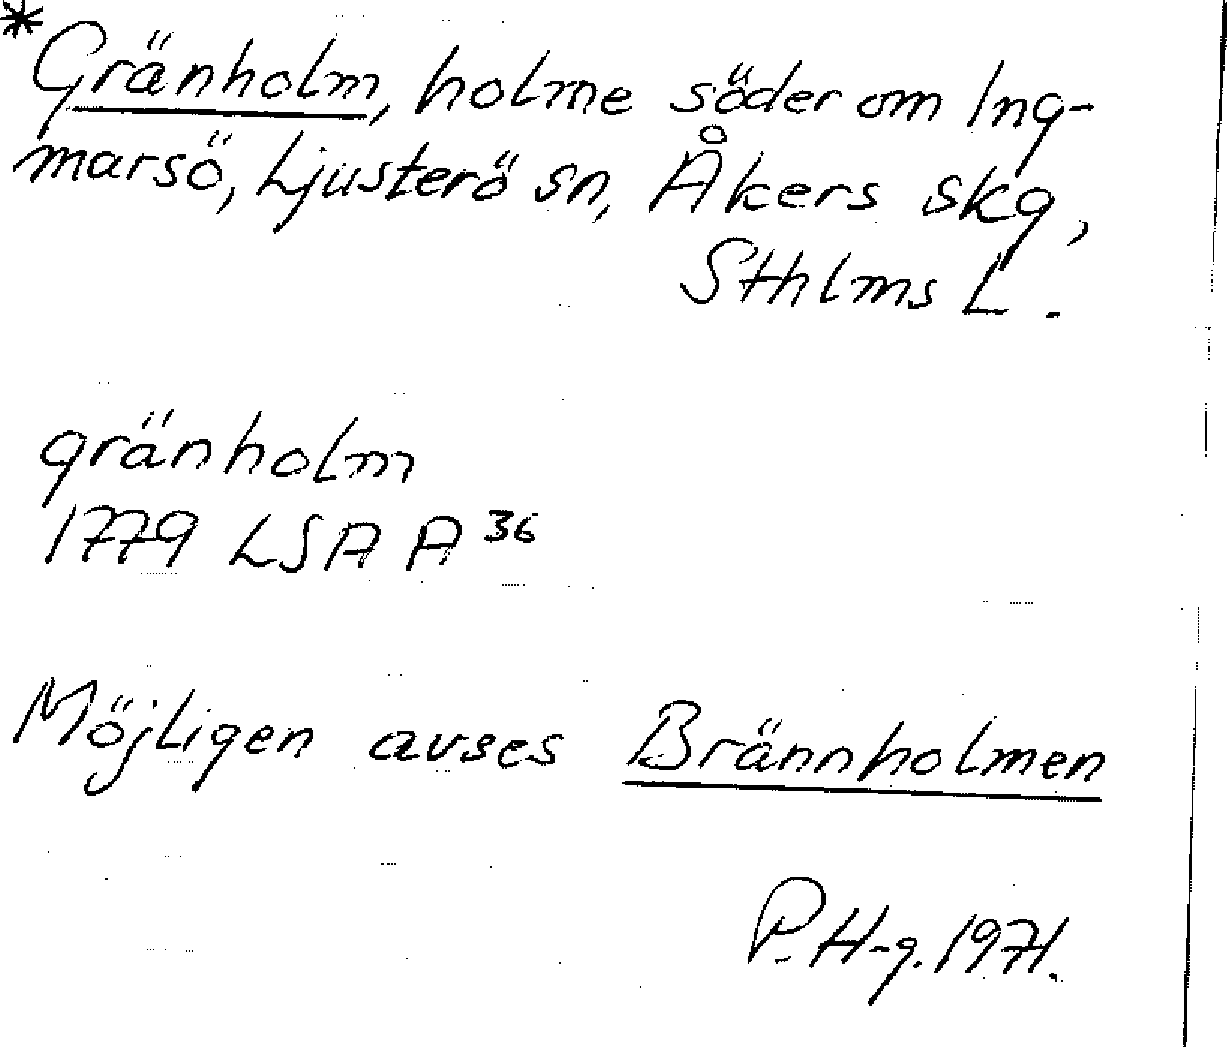 *Gränholm, holme söder om Ing-
marsö, Ljusterö sn, Åkers skg,
Sthlms L.
gränholm
1779 LSA A 36
Möjligen avses Brännholmen
P. H-g. 1971.